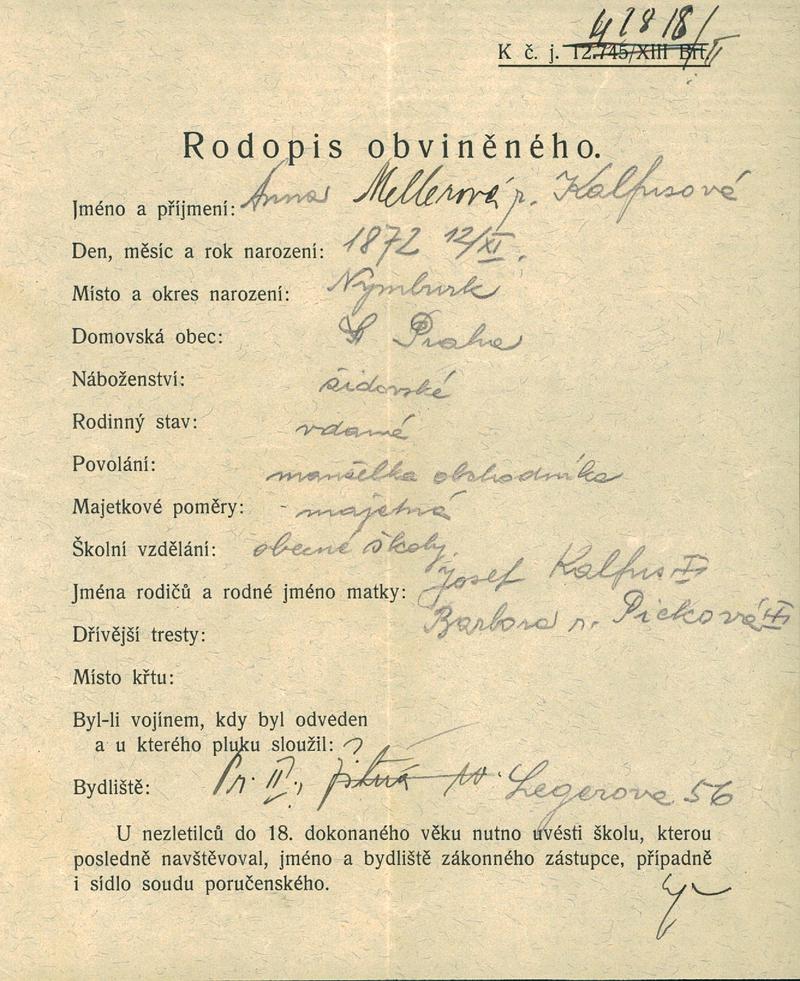 4 2818/II
K č. j. 12.745/XIII Brt.
Rodopis obviněného.
Jméno a příjmení: Anna Mellerová r. Kalfusová
Den, měsíc a rok narození: 1872 12/XI.
Místo a okres narození: Nymburk
Domovská obec: Praha
Náboženství: židovské
Rodinný stav: vdaná
Povolání: manželka obchodníka
Majetkové poměry: - majetná
Školní vzdělání: obecné školy.
Jména rodičů a rodné jméno matky: Josef Kalfus
Barbora r. Picková
Dřívější tresty:
Místo křtu:
Byl-li vojínem, kdy byl odveden
a u kterého pluku sloužil: ?
Bydliště: Pr. II., Žitná Legerova 56
U nezletilců do 18. dokonaného věku nutno uvésti školu, kterou
posledně navštěvoval, jméno a bydliště zákonného zástupce, případně
i sídlo soudu poručenského.